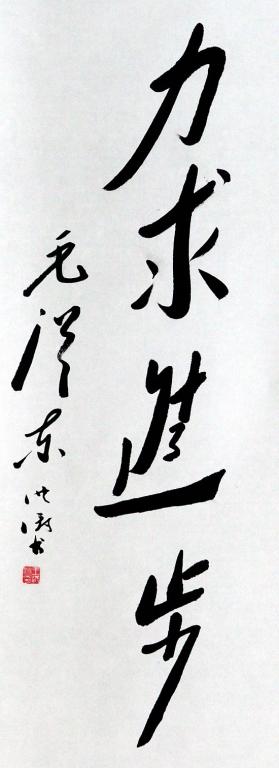 力求進步
毛澤东
书